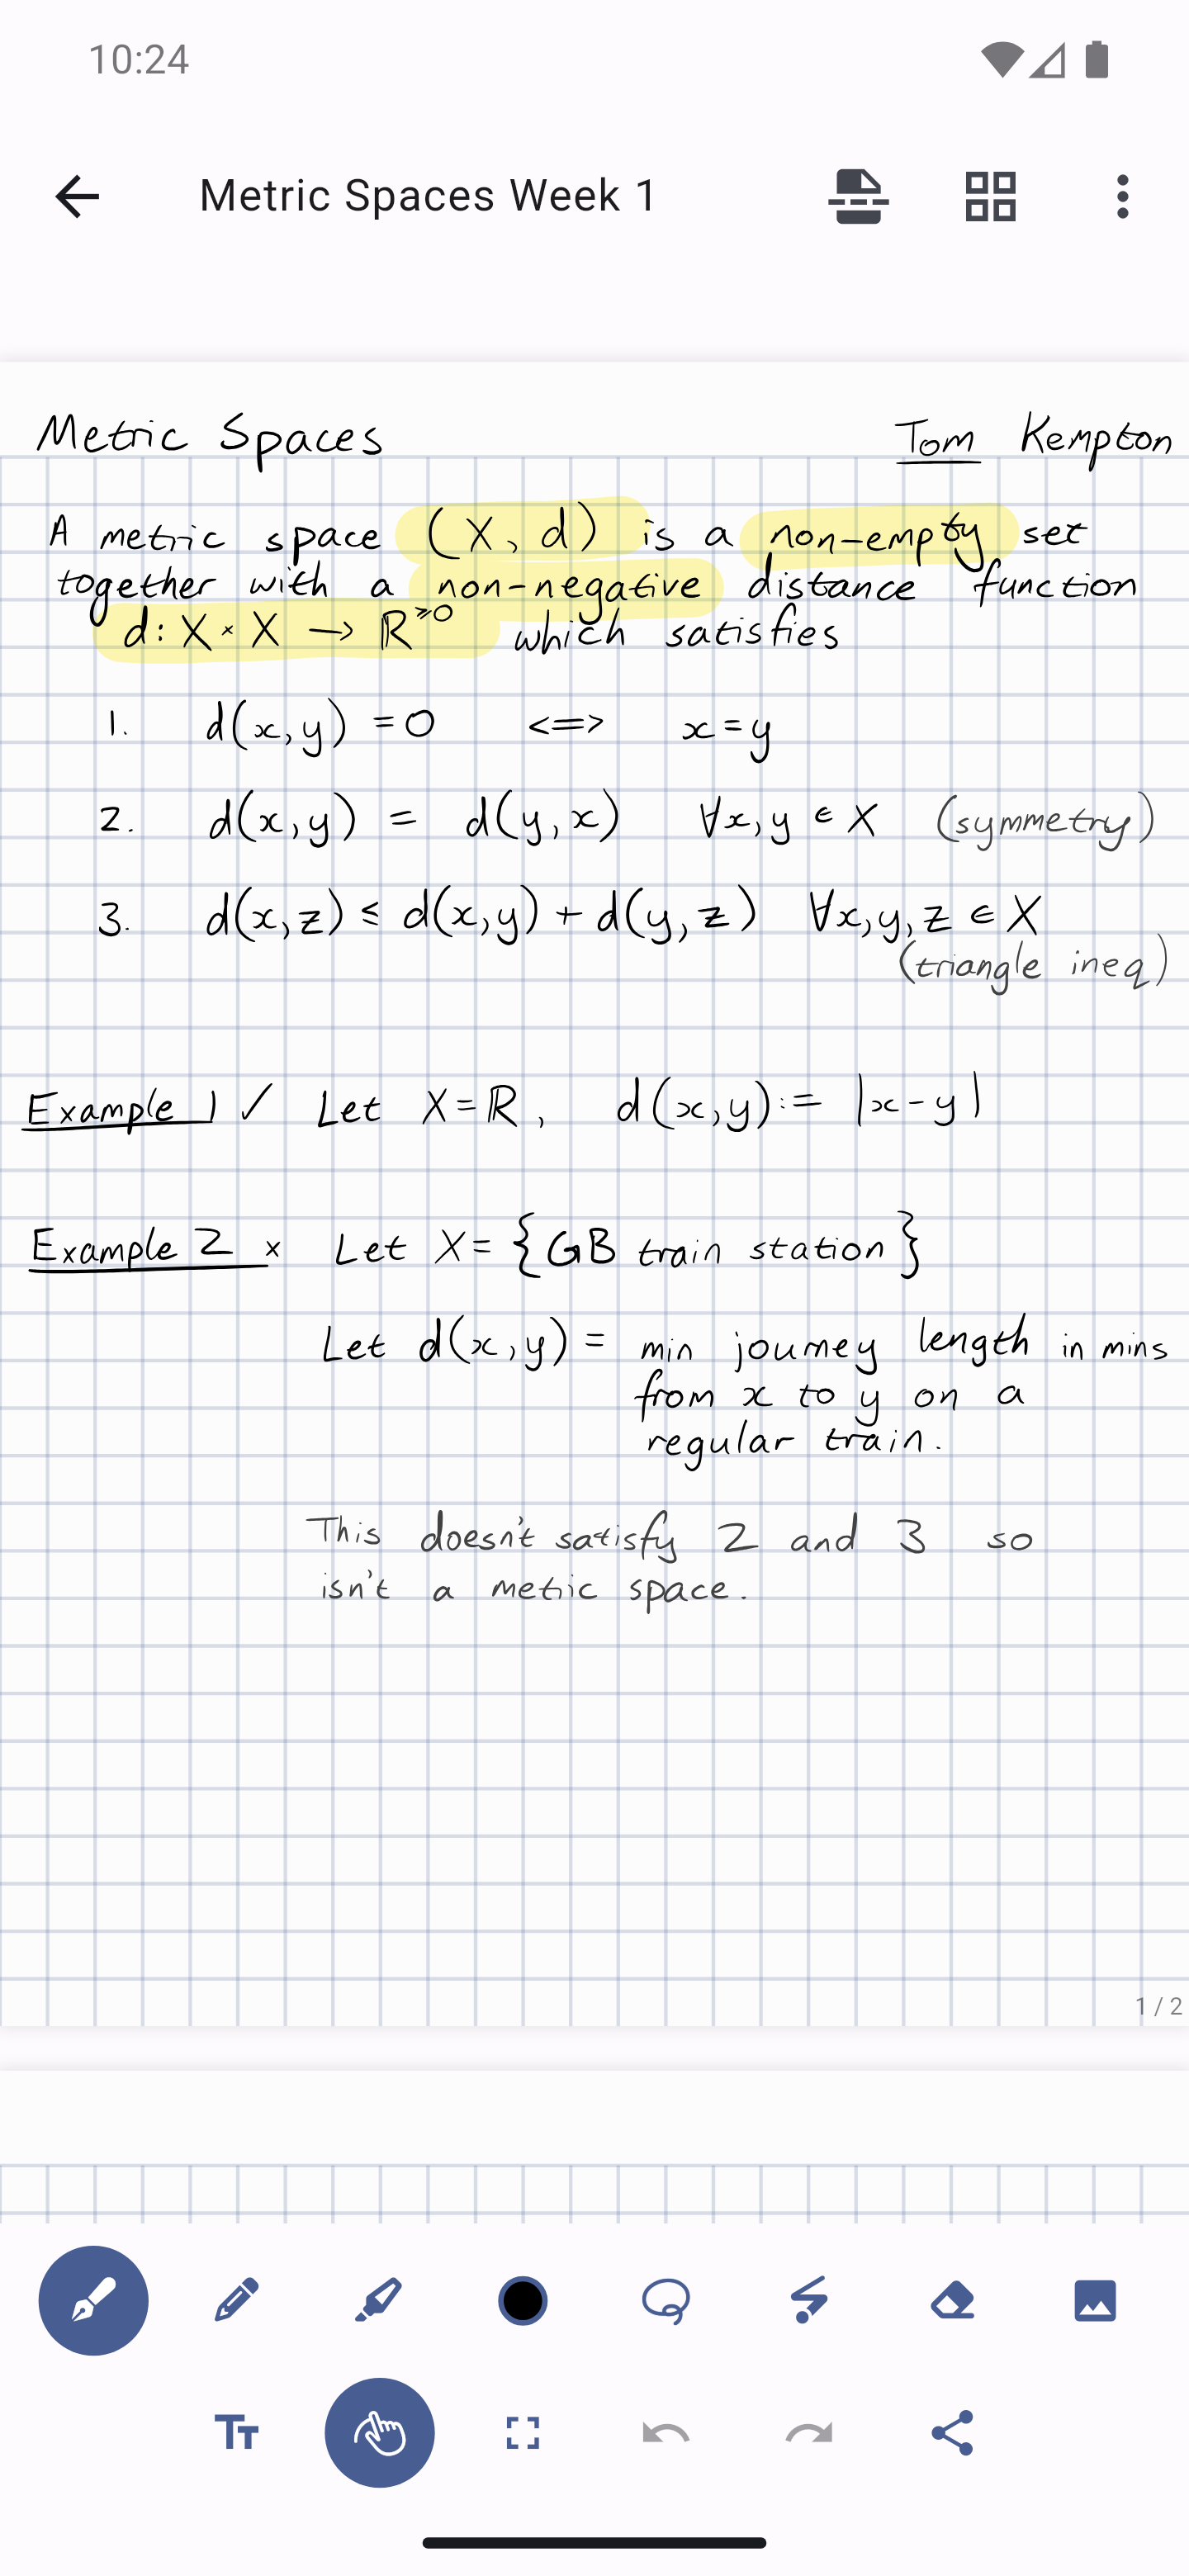 10:24
Metric Spaces Week 1
Metric Spaces Tom Kempton
A metric space (X, d) is a non-empty set
together with a non-negative distance function
d: X × X → ℝ^≥0 which satisfies
1. d(x,y) = 0 <=> x=y
2. d(x,y) = d(y,x) ∀x,y ∈ X (symmetry)
3. d(x,z) ≤ d(x,y) + d(y,z) ∀x,y,z ∈ X
(triangle ineq)
Example 1 ✓ Let X=ℝ, d(x,y) := |x-y|
Example 2 × Let X= {GB train station}
Let d(x,y) = min journey length in mins
from x to y on a
regular train.
This doesn't satisfy 2 and 3 so
isn't a metric space.
1 / 2
TT